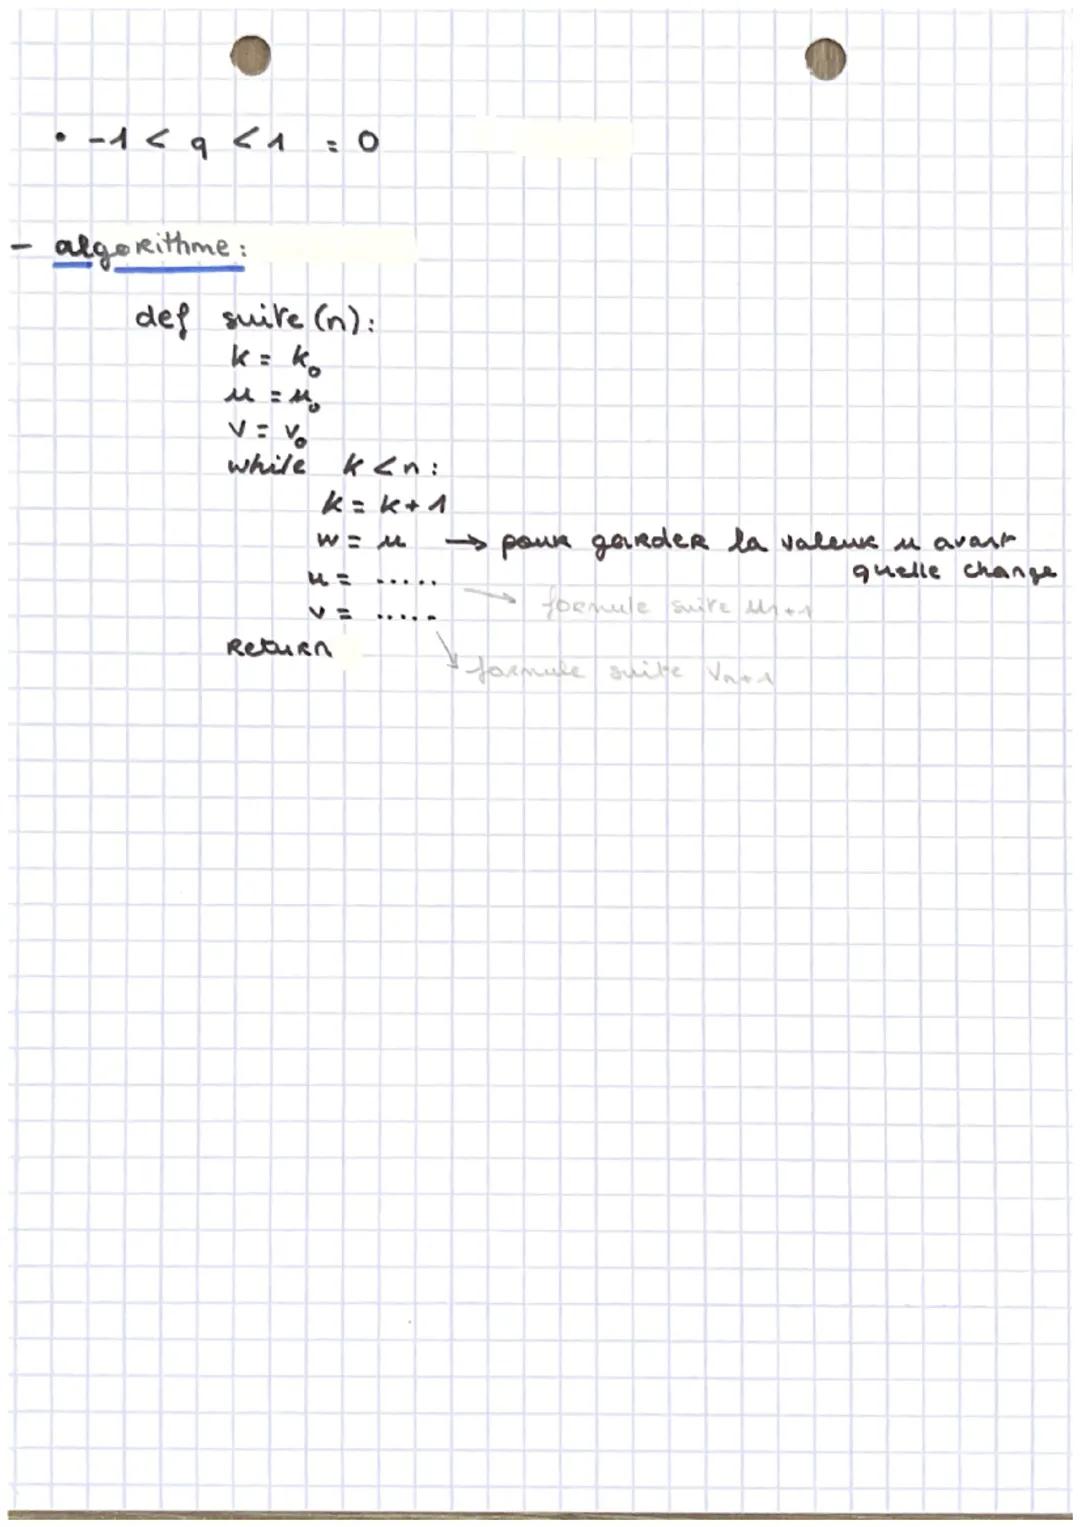 • -1 < q < 1 = 0
- algorithme :
def suite (n) :
k = k₀
u = u₀
v = v₀
while k < n :
k = k + 1
w = u → pour garder la valeur u avant
quelle change
u = .....
→ formule suite un+1
v = .....
Return
formule suite Vn+1